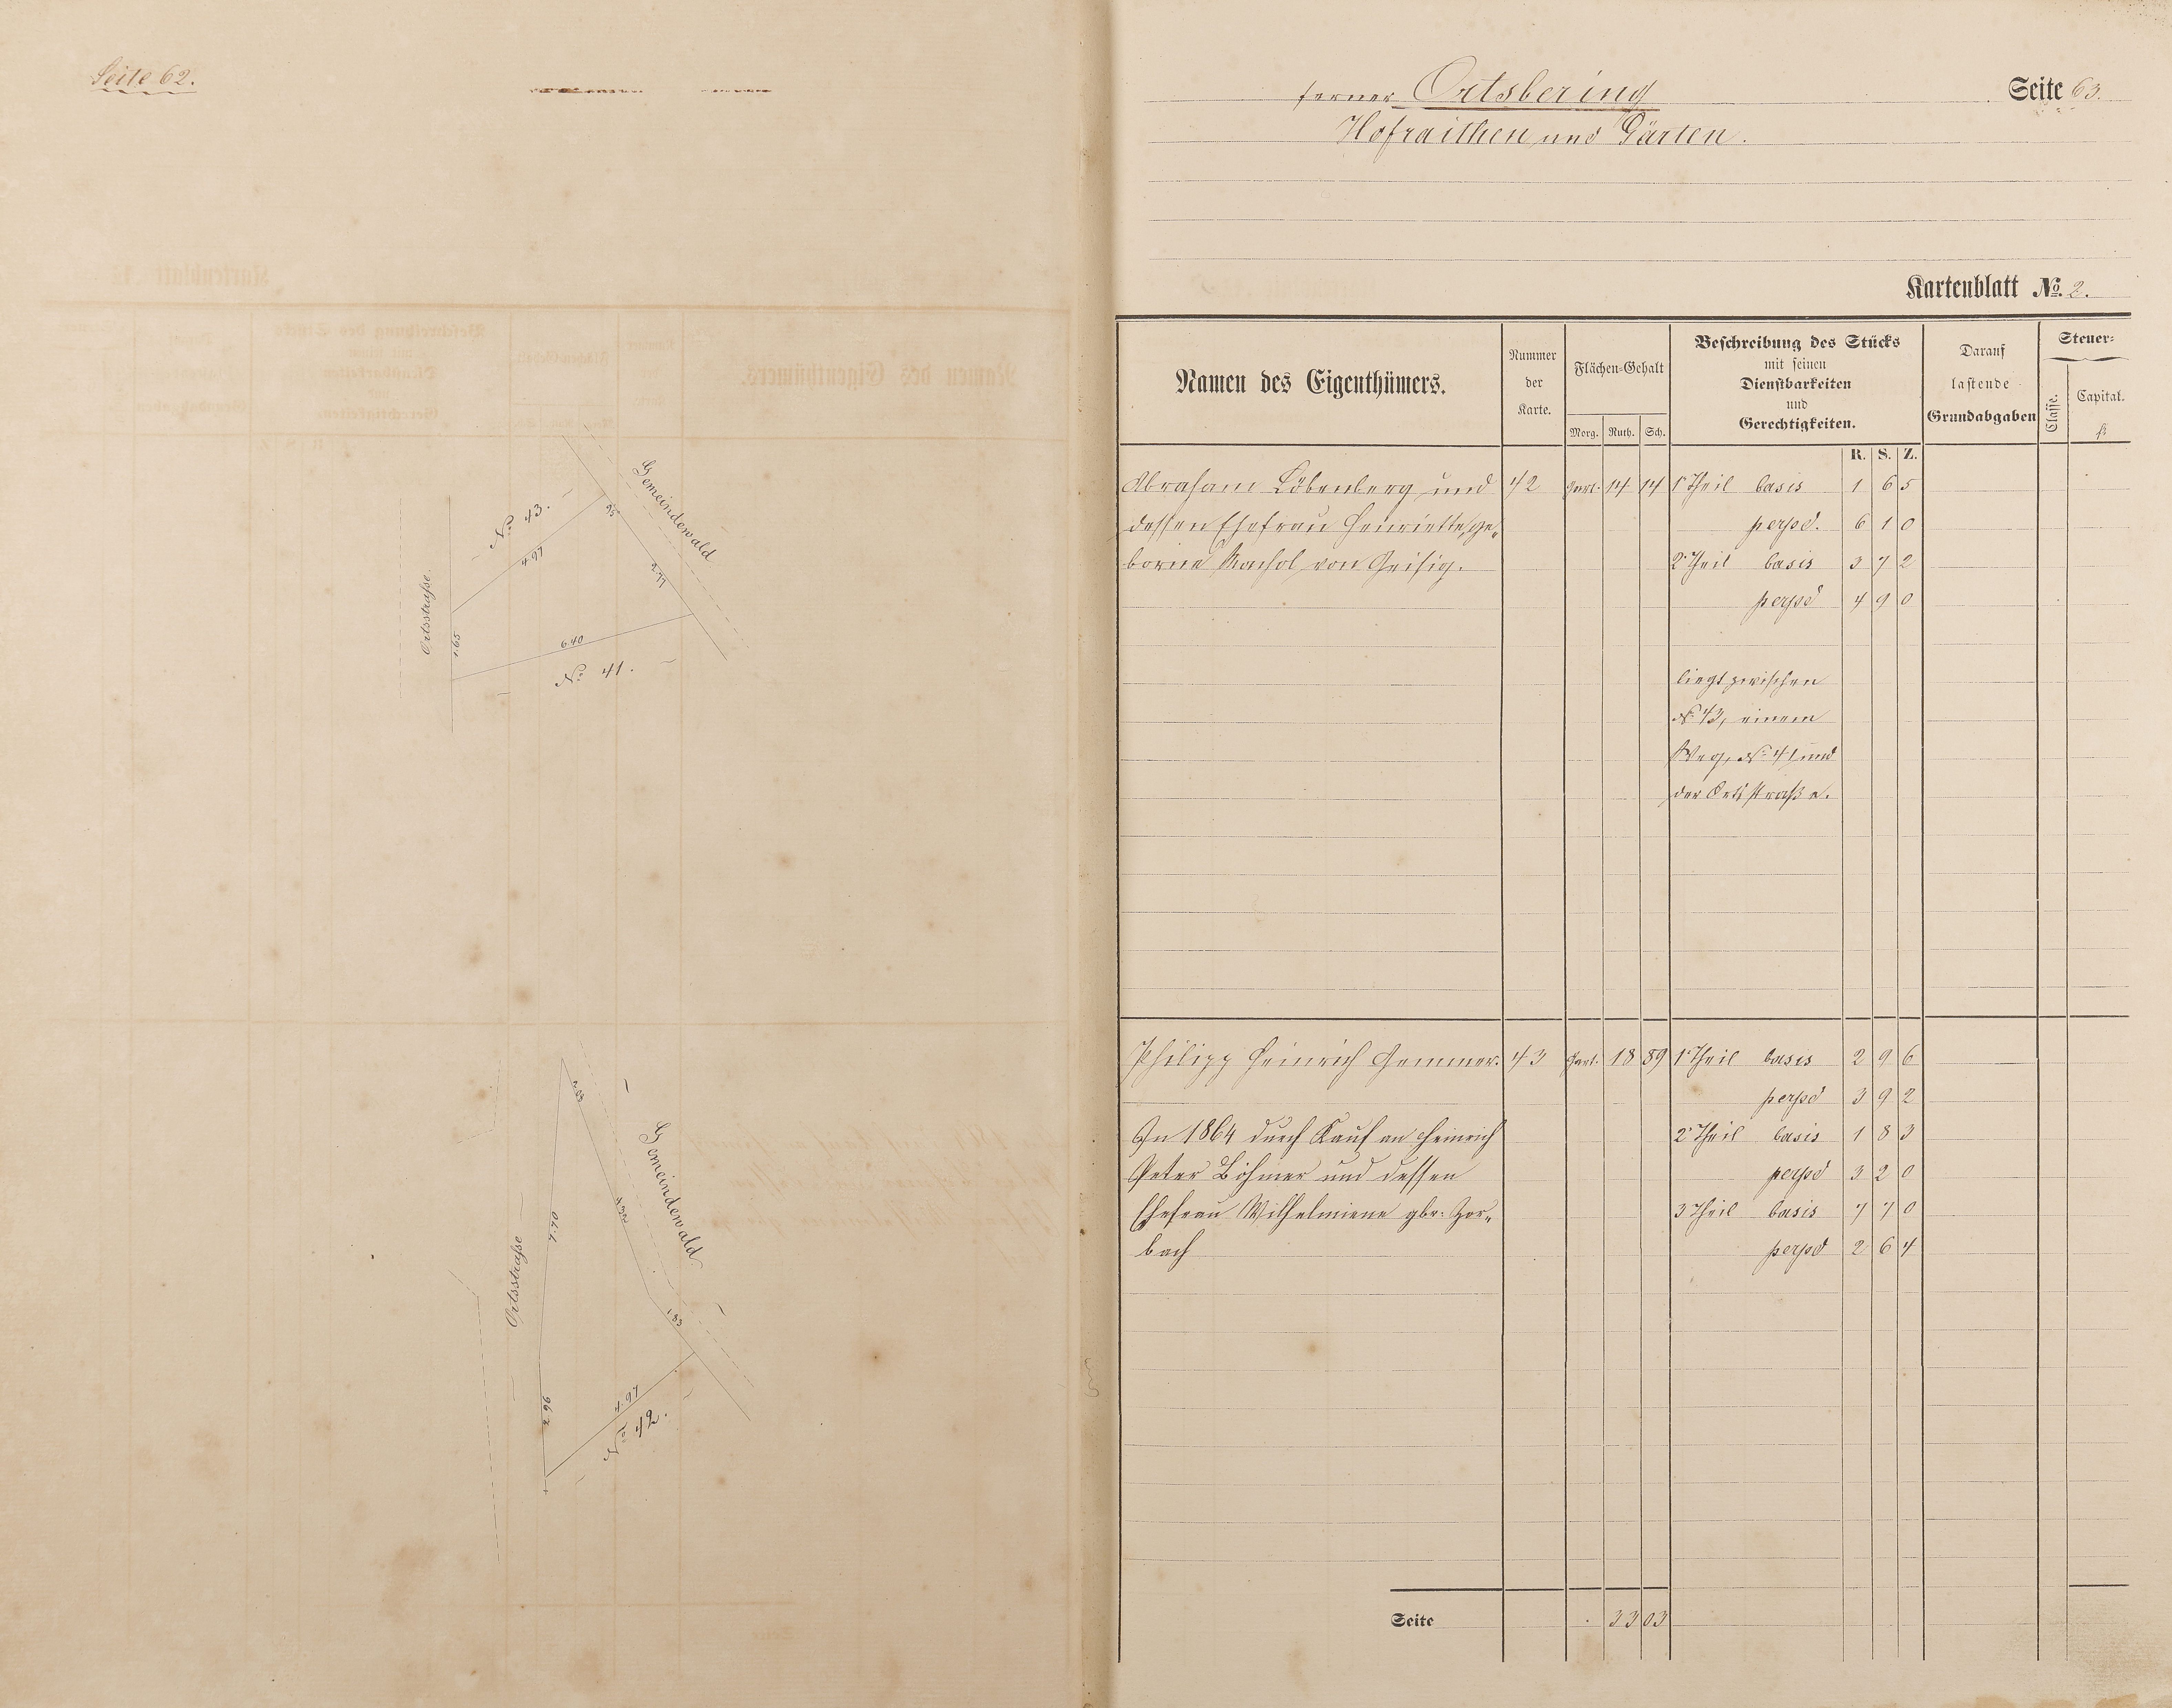 Seite 62.
Gemeindewald
No 43.
95
4.97
2.77
Ortsstraße.
1.65
6.40
No 41.
2.03
Gemeindewald
7.70
Ortsstraße
1.83
2.96
4.97
No 42.
ferner Ortsbering
Seite 63.
Hofraithen und Gärten.
Kartenblatt No. 2.
Namen des Eigenthümers.
Nummer der Karte.
Flächen-Gehalt
Morg. Ruth. Sch.
Beschreibung des Stücks
mit seinen
Dienstbarkeiten
und
Gerechtigkeiten.
Darauf
lastende
Grundabgaben
Steuer-
Classe.
Capital.
fl.
R. S. Z.
Abraham Löbenberg und 42 Gart. 14 14 1r Theil basis 1 6 5
dessen Ehefrau Henriette, ge„ perpd. 6 1 0
borne von Geisig. 2r Theil basis 3 7 2
perpd 4 9 0
liegt zwischen
No 43, einem
Weg, No 41 und
der Ortsstraße.
Philipp Heinrich Gemmer. 43 Gart. 18 89 1r Theil basis 2 9 6
perpd 3 9 2
In 1864 durch Kauf an Heinrich 2r Theil basis 1 8 3
Peter Böhmer und dessen perpd 3 2 0
Ehefrau Wilhelmiene gbr. Zor„ 3 Theil basis 7 7 0
bach perpd 2 6 4
Seite . 33 03